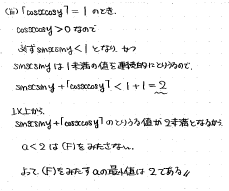 (iii) 「cosxcosy」= 1 のとき、
cosxcosy > 0 なので
必ず sinxsiny < 1 となり、かつ
sinxsiny は 1未満の値を連続的にとりうるので、
sinxsiny + 「cosxcosy」 < 1 + 1 = 2
以上から、
sinxsiny + 「cosxcosy」 のとりうる値が 2未満となるから
a < 2 は (F) をみたさない。
よって (F) をみたす aの最小値は 2 である 〃